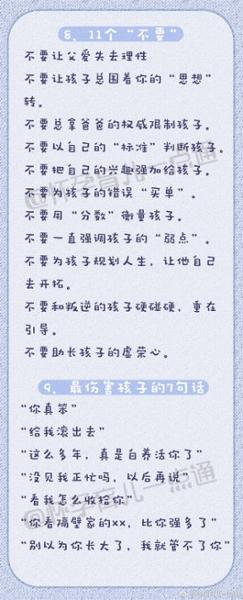 8、11个“不要”
不要让父爱失去理性
不要让孩子总围着你的“思想”
转。
不要总拿爸爸的权威限制孩子。
不要以自己的“标准”判断孩子。
不要把自己的兴趣强加给孩子。
不要为孩子的错误“买单”。
不要用“分数”衡量孩子。
不要一直强调孩子的“弱点”。
不要为孩子规划人生，让他自己
去开拓。
不要和叛逆的孩子硬碰硬，重在
引导。
不要助长孩子的虚荣心。
9、最伤害孩子的7句话
“你真笨”
“给我滚出去”
“这么多年，真是白养活你了”
“没见我正忙吗，以后再说”
“看我怎么收拾你”
“你看隔壁家的xx，比你强多了”
“别以为你长大了，我就管不了你”
@怀孕育儿一点通
@怀孕育儿一点通